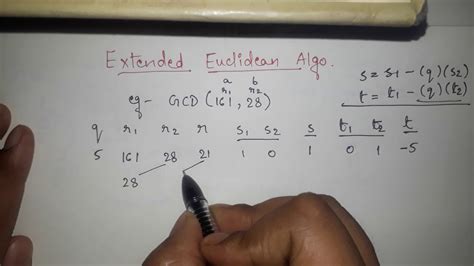 Extended Euclidean Algo.
a b
r1 r2
eg - GCD (161, 28)
s = s1 - (q)(s2)
t = t1 - (q)(t2)
q r1 r2 r s1 s2 s t1 t2 t
5 161 28 21 1 0 1 0 1 -5
28